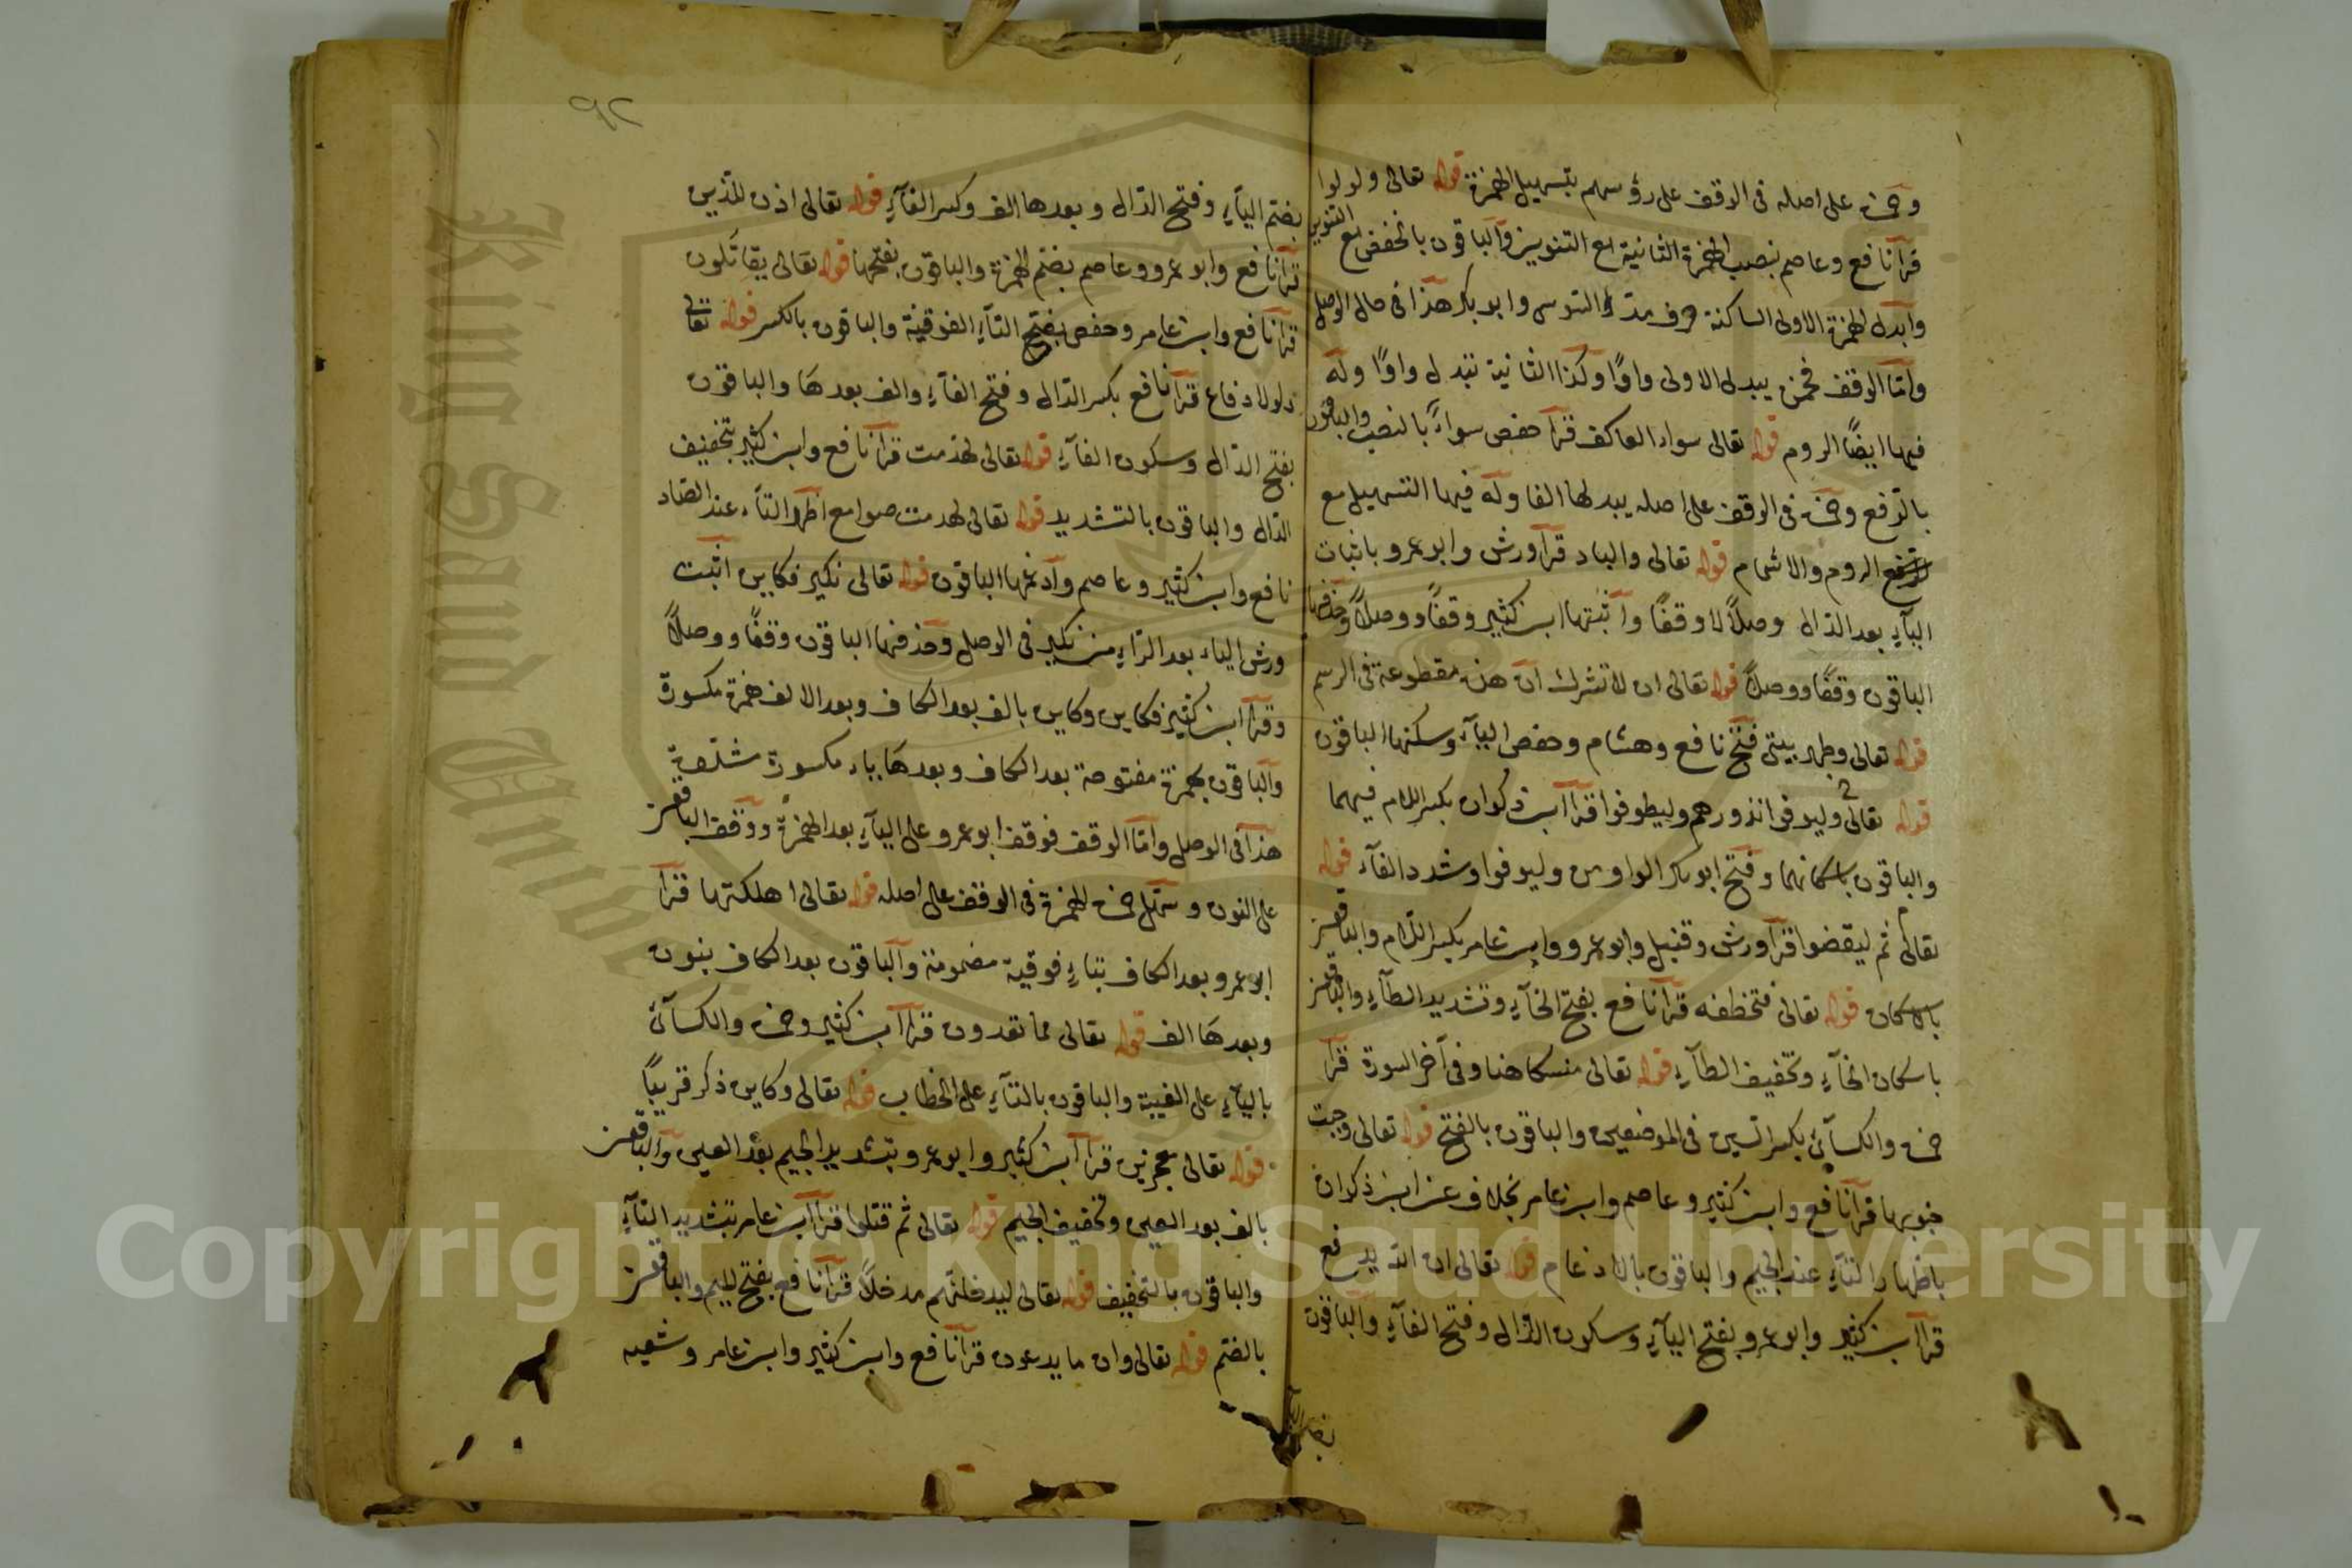 وحمزة على اصله فى الوقف على رؤسهم بتسهيل الهمزة قوله تعالى ولولوا
قرأ نافع وعاصم بنصب الهمزة الثانية مع التنوين والباقون بالخفض مع التنوين
وابدل الهمزة الاولى الساكنة حرف مد السوسى وابو بكر هذا فى حال الوصل
وامّا الوقف فحمزة يبدل الاولى واوًا وكذا الثانية تبدل واوًا وله
فيها ايضًا الروم قوله تعالى سواء العاكف قرأ حفص سواءً بالنصب والباقون
بالرفع وحمزة فى الوقف على اصله يبدلها الفا وله فيها التسهيل مع
الروم والاشمام قوله تعالى والباد قرأ ورش وابو عمرو باثبات
اليآء بعد الدال وصلًا لا وقفًا وأثبتها ابن كثير وقفًا ووصلًا وحذفها
الباقون وقفًا ووصلًا قوله تعالى ان لا تشرك ان هذه مقطوعة فى الرسم
قوله تعالى وطهر بيتى فتح نافع وهشام وحفص اليآء وسكنها الباقون
قوله تعالى وليوفوا نذورهم وليطوفوا قرأ ابن ذكوان بكسر اللام فيهما
والباقون باسكانهما وفتح ابو بكر الواو من وليوفوا وشدد الفآء قوله
تعالى ثم ليقضوا قرأ ورش وقنبل وابو عمرو وابن عامر بكسر اللام والباقون
بالاسكان قوله تعالى فتخطفه قرأ نافع بفتح الخآء وتشديد الطآء والباقون
باسكان الخآء وتخفيف الطآء قوله تعالى منسكا هنا وفى آخر السورة قرأ
حمزة والكسآئى بكسر السين فى الموضعين والباقون بالفتح قوله تعالى وجبت
جنوبها قرأ نافع وابن كثير وعاصم وابن عامر بخلاف عن ابن ذكوان
باظهار التآء عند الجيم والباقون بالادغام قوله تعالى ان الله يدفع
قرأ ابن كثير وابو عمرو بفتح اليآء وسكون الدال وفتح الفآء والباقون
بضم اليآء
٩٢
بضم اليآء وفتح الدال وبعدها الف وكسر الفآء قوله تعالى اذن للذين
قرأ نافع وابو عمرو وعاصم بضم الهمزة والباقون بفتحها قوله تعالى يقاتَلون
قرأ نافع وابن عامر وحفص بفتح التآء الفوقية والباقون بالكسر قوله تعالى
ولولا دفاع قرأ نافع بكسر الدال وفتح الفآء والف بعدها والباقون
بفتح الدال وسكون الفآء قوله تعالى لهدمت قرأ نافع وابن كثير بتخفيف
الدال والباقون بالتشديد قوله تعالى لهدمت صوامع اظهر التآء عند الصاد
نافع وابن كثير وعاصم وأدغمها الباقون قوله تعالى نكير فكاين اثبت
ورش الياء بعد الرآء من نكير فى الوصل وحذفها الباقون وقفًا ووصلًا
وقرأ ابن كثير فكاين وكاين بالف بعد الكاف وبعد الالف همزة مكسورة
والباقون بهمزة مفتوحة بعد الكاف وبعدها ياء مكسورة مشدّدة
هذا فى الوصل وأمّا الوقف فوقف ابو عمرو على اليآء بعد الهمزة ووقف الباقون
على النون وسهّل حمزة الهمزة فى الوقف على اصله قوله تعالى اهلكتها قرأ
ابو عمرو بعد الكاف بتاء فوقية مضمومة والباقون بعد الكاف بنون
وبعدها الف قوله تعالى مما تعدون قرأ ابن كثير وحمزة والكسآئى
باليآء على الغيبة والباقون بالتآء على الخطاب قوله تعالى وكاين ذكر قريبًا
قوله تعالى معجزين قرأ ابن كثير وابو عمرو بتشديد الجيم بعد العين والباقون
بالف بعد العين وتخفيف الجيم قوله تعالى ثم قتلوا قرأ ابن عامر بتشديد التآء
والباقون بالتخفيف قوله تعالى ليدخلنّهم مدخلًا قرأ نافع بفتح الميم والباقون
بالضم قوله تعالى وان ما يدعون قرأ نافع وابن كثير وابن عامر وشعبه
King Saud University
Copyright © King Saud University